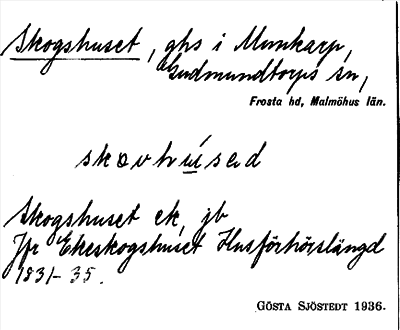 Skogshuset, ghs i Munkarp,
Gudmundtorps sn,
Frosta hd, Malmöhus län.
skovhúsad
Skogshuset ek, jb
Jfr Ekeskogshuset Husförhörslängd
1831-35.
GÖSTA SJÖSTEDT 1936.